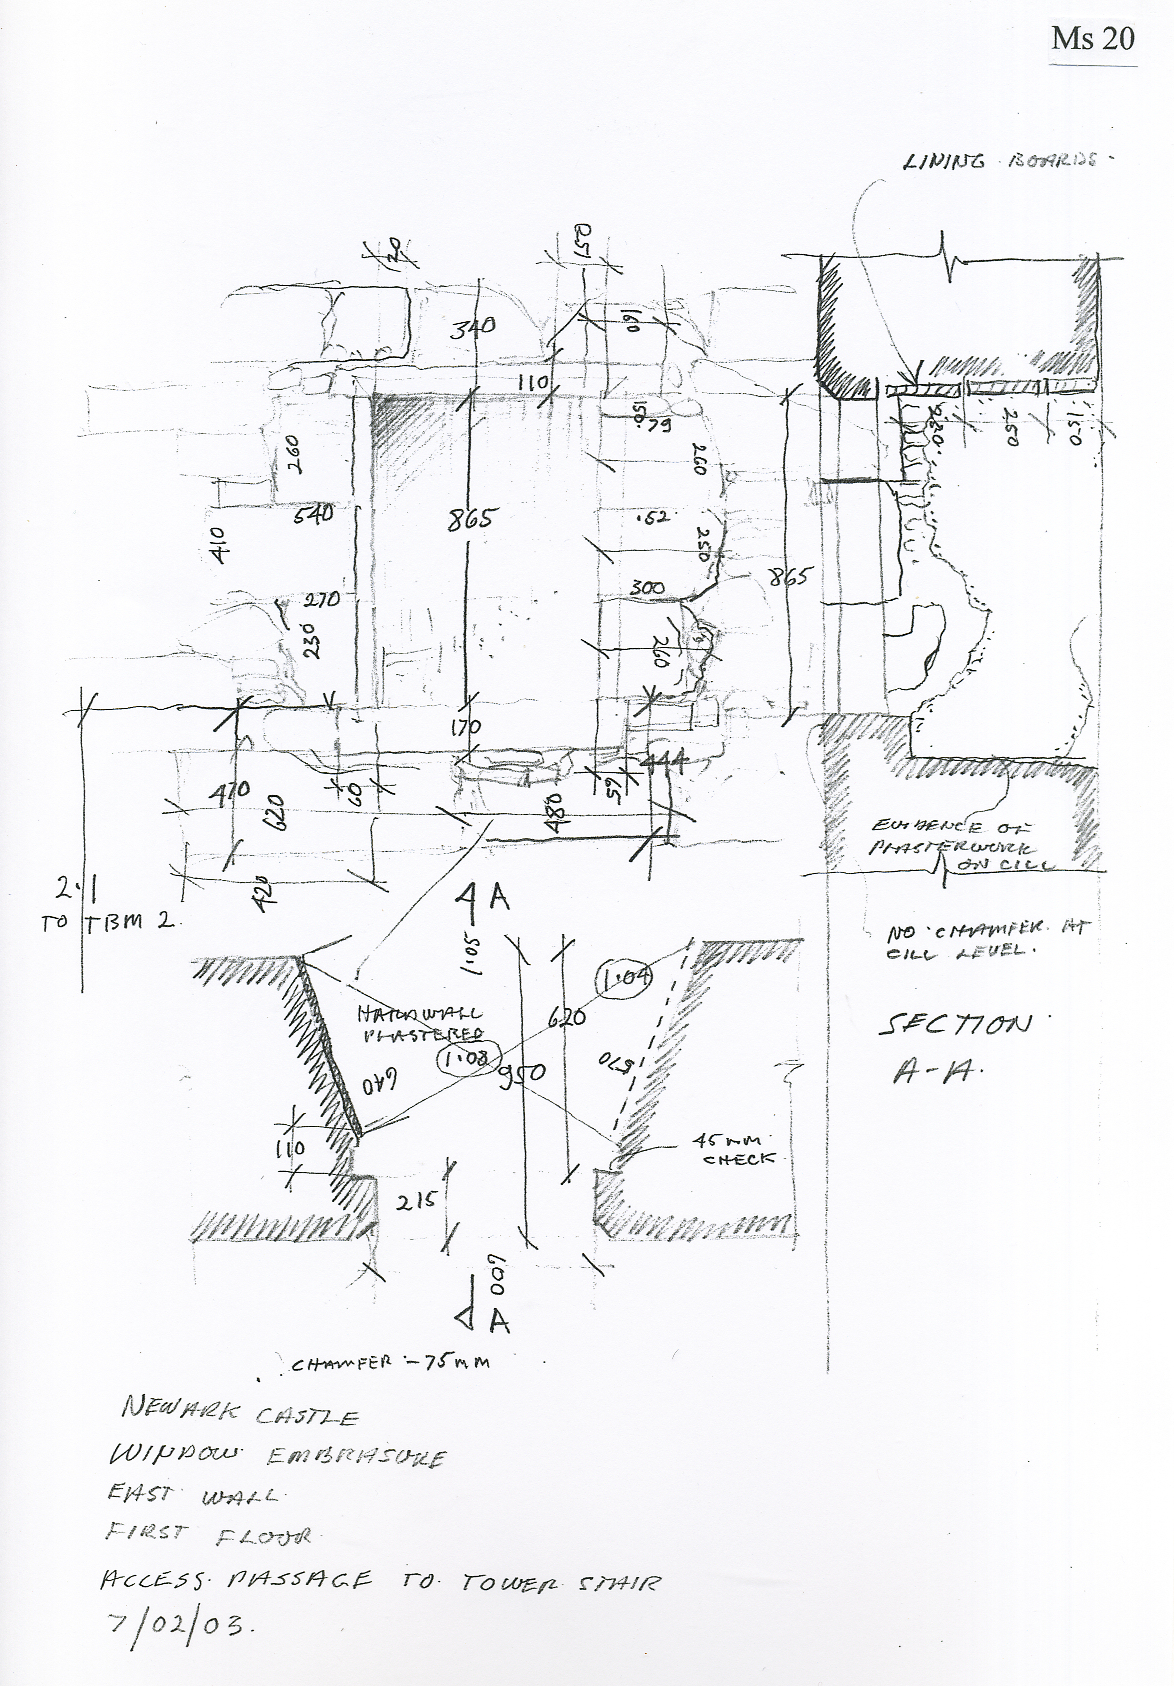 Ms 20
LINING BOARDS.
20
150
340
160
110
150
260
260
·250·
250
150
540
865
·52·
410
250
865
270
300
230
260
170
444
410
620
60
480
420
EVIDENCE OF
PLASTERWORK
ON CILL
2·1
TO TBM 2.
A
NO CHAMFER AT
CILL LEVEL.
1·05
1·04
HARDWALL
PLASTERED
620
SECTION
A-A.
1·08
950
570
640
45 mm
CHECK
110
215
A
CHAMFER - 75mm
NEWARK CASTLE
WINDOW EMBRASURE
EAST WALL
FIRST FLOOR
ACCESS PASSAGE TO TOWER STAIR
7/02/03.